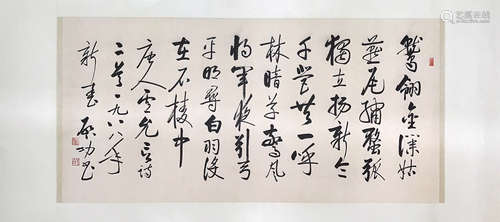 鷲翎金僕姑
燕尾繡蝥弧
獨立揚新令
千營共一呼
林暗草驚風
將軍夜引弓
平明尋白羽沒
在石棱中
唐人盧允言詩
二首一九八八年
新春啟功書